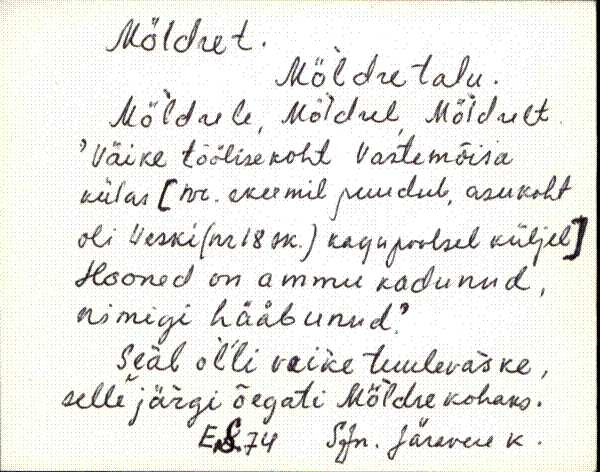 Möldret.
Möl̀dretalu.
Möldrele, Möldrel, Möldrelt.
'Väike töölisekoht Vastemõisa
külas [nr. skeemil puudub, asukoht
oli Veski (nr 18 sk.) kagupoolsel küljel]
Hooned on ammu kadunud,
nimigi hääbunud.'
Seäl òlli väike tuuleväske,
selle järgi õegati Möldre kohaks.
ES. 74 Sjn. Järavere k.